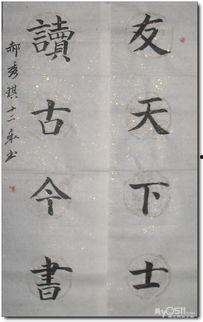 友天下士
讀古今書
郝秀琪十二歲書